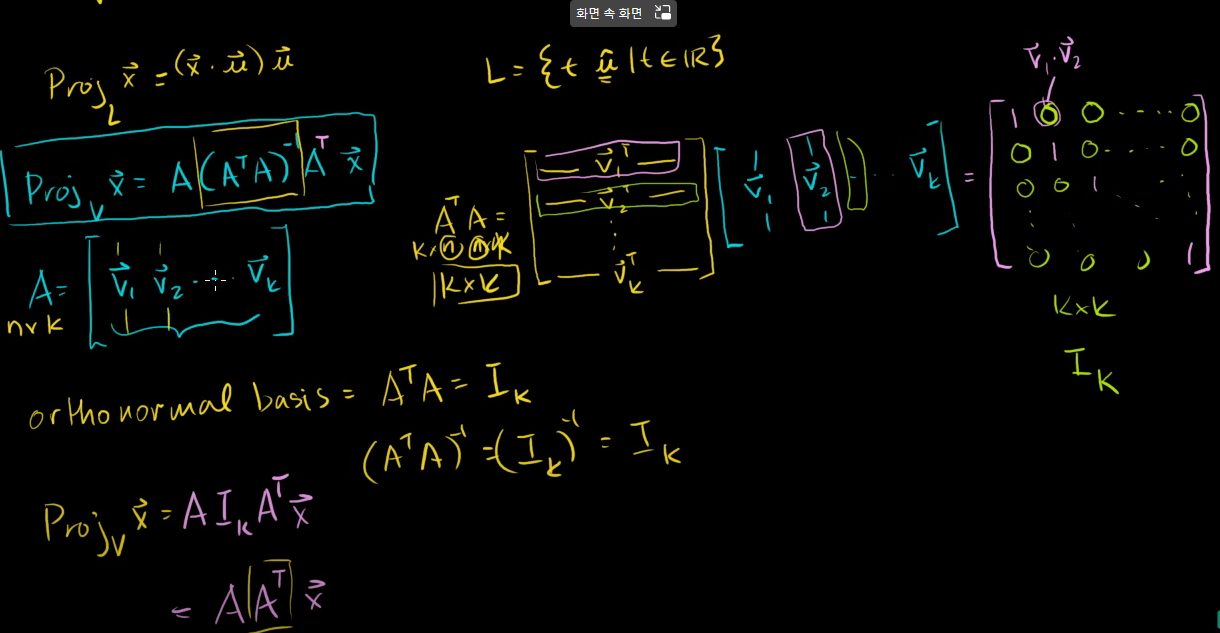 화면 속 화면
Proj_L x⃗ = (x⃗ · u⃗) u⃗
L = {t û | t ∈ ℝ}
Proj_V x⃗ = A (AᵀA)⁻¹ Aᵀ x⃗
A = [v⃗₁ v⃗₂ ... v⃗_k]
n×k
AᵀA =
k×n n×k
k×k
[v⃗₁ᵀ
v⃗₂ᵀ
⋮
v⃗_kᵀ]
[v⃗₁ v⃗₂ ... v⃗_k] =
v⃗₁·v⃗₂
[1 0 0 ..... 0
0 1 0 ..... 0
0 0 1 ⋮
⋮ ⋱ ⋮
0 0 0 1]
k×k
I_k
orthonormal basis = AᵀA = I_k
(AᵀA)⁻¹ = (I_k)⁻¹ = I_k
Proj_V x⃗ = A I_k Aᵀ x⃗
= A Aᵀ x⃗